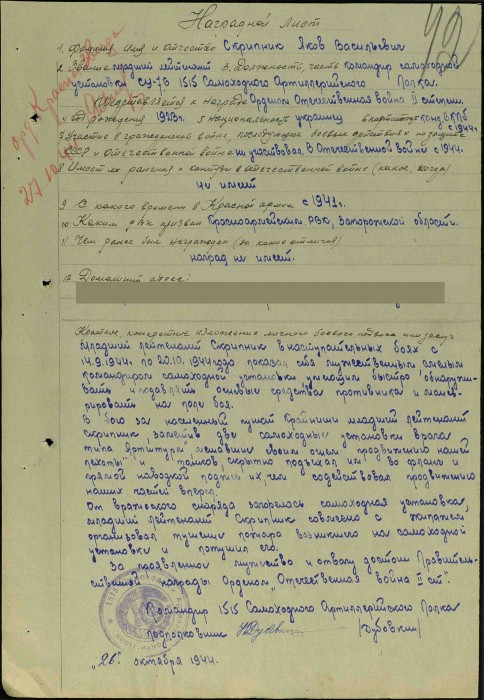 Наградной лист
1. Фамилия имя и отчество Скрипник Яков Васильевич
2. Звание младший лейтенант 3. Должность, часть командир самоходной
установки СУ-76 1515 Самоходного Артиллерийского Полка.
Представляется к награде Орденом Отечественная война II степени.
4 год рождения 1923г. 5 Национальность украинец 6 партийность канд. ВКПб
с 1944г.
7 Участие в гражданской войне, последующих боевых действиях по защите
СССР и Отечественной войне не участвовал. В Отечественной войне с 1944г.
8 Имеет ли ранения и контузии в отечественной войне (какие, когда)
не имеет
9 С какого времени в Красной армии с 1941г.
10 Каким РВК призван Красноармейским РВК, Запорожской области.
11 Чем ранее был награжден (за какие отличия)
наград не имеет.
12 Домашний адрес:
Краткое, конкретное изложение личного боевого подвига или заслуг
Младший лейтенант Скрипник в наступательных боях с
14.9.1944г. по 20.10.1944 года показал себя мужественным смелым
командиром самоходной установки умеющим быстро обнаружи-
вать и подавлять огневые средства противника и манев-
рировать на поле боя.
В бою за населенный пункт младший лейтенант
Скрипник, заметив две самоходные установки врага
типа Артштурм, мешавшие своим огнем продвижению нашей
пехоты и танков, скрытно подъехал к ним во фланг и
прямой наводкой поджег их, чем содействовал продвижению
наших частей вперед.
От вражеского снаряда загорелась самоходная установка,
младший лейтенант Скрипник совместно с экипажем
организовал тушение пожара возникшего на самоходной
установке и потушил его.
За проявленное мужество и отвагу достоин Правитель-
ственной награды Орденом „Отечественная война II ст".
Командир 1515 Самоходного Артиллерийского Полка
подполковник /Дубовкин/
„26" октября 1944г.